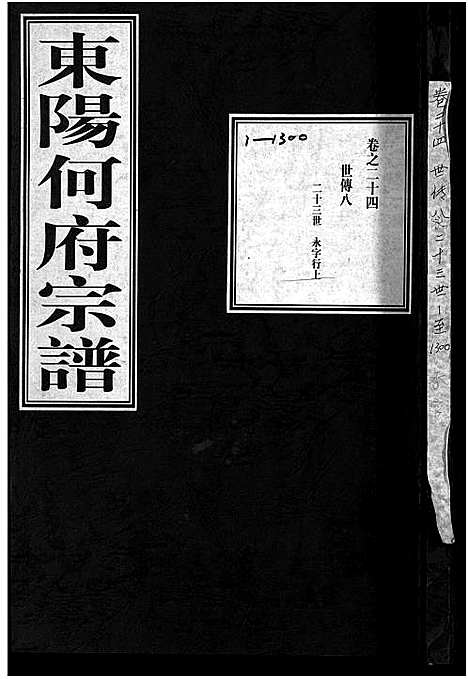 東陽何府宗譜
1—1300
卷之二十四
世傳八
二十三世 永字行上
卷二十四 世傳八 二十三世 1-至1300